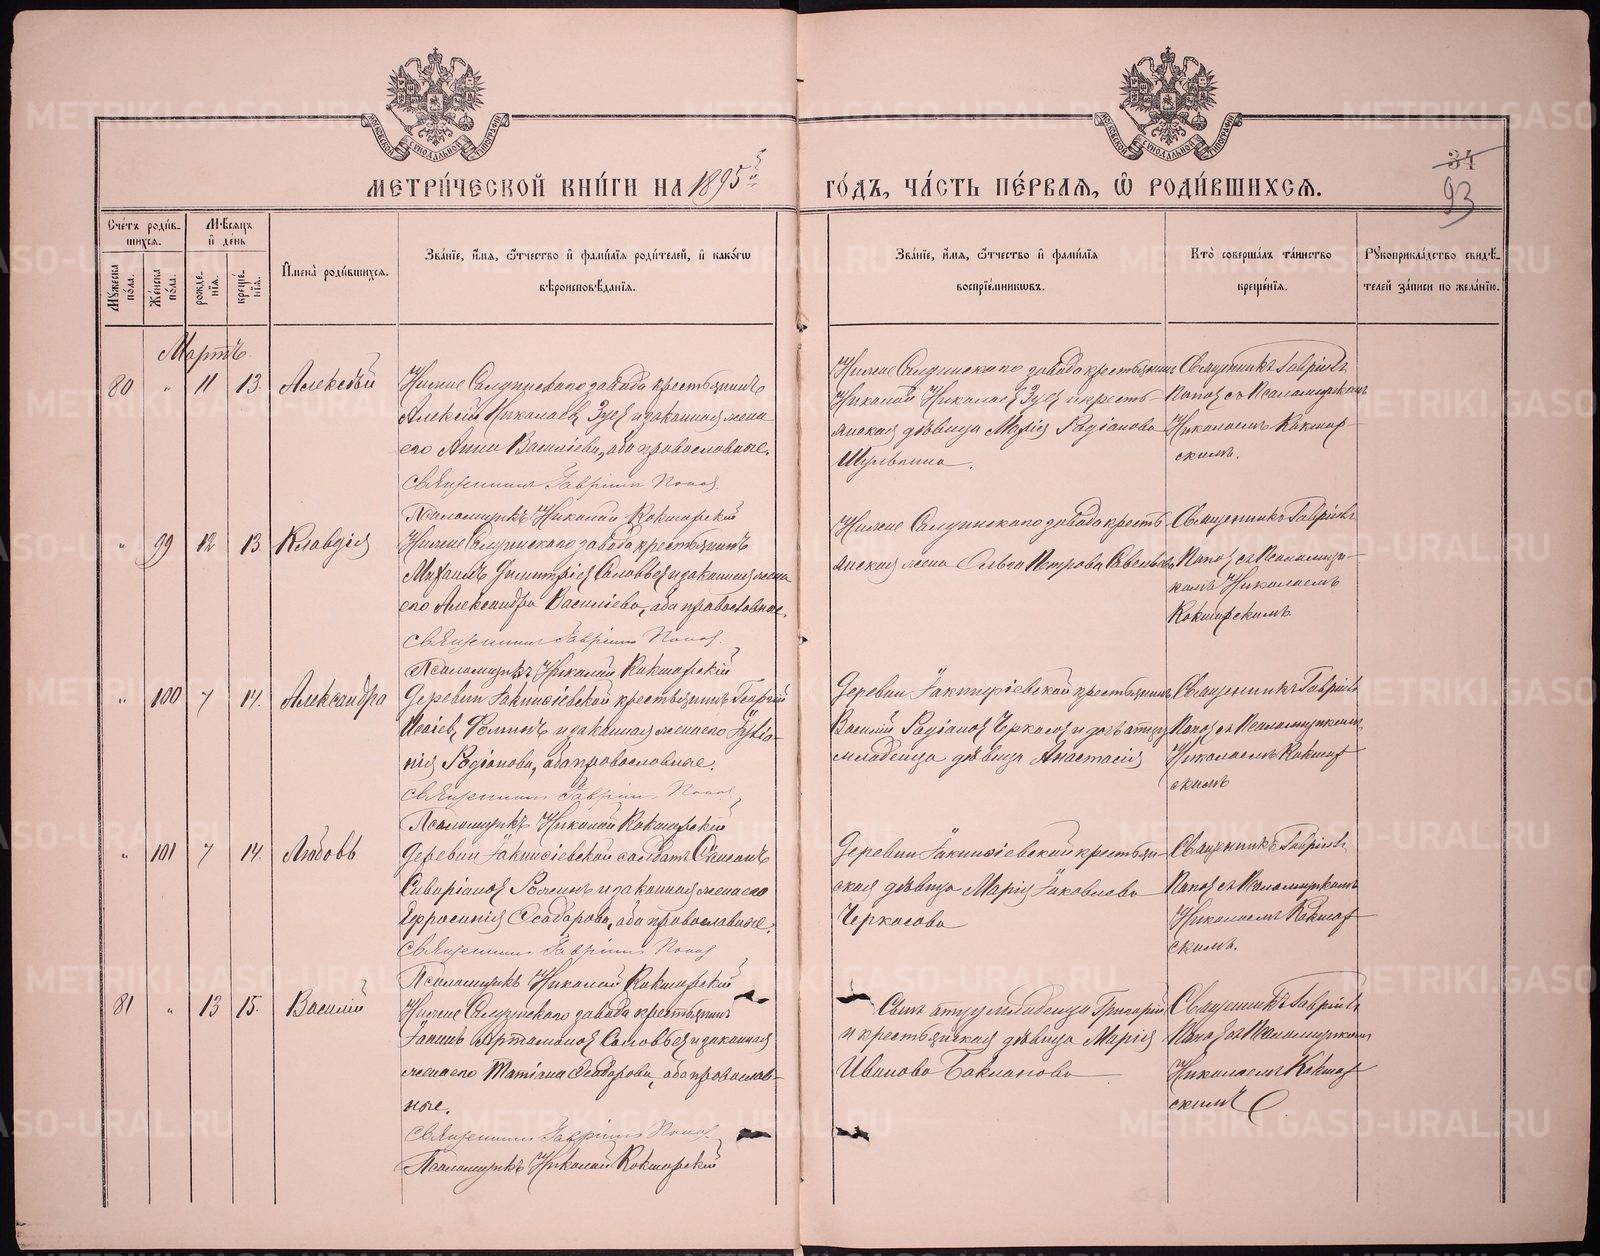 МЕТРИ́ЧЕСКОЙ КНИ́ГИ НА 1895й
ГО́ДЪ, ЧА́СТЬ ПЕ́РВАѦ, Ѡ҆ РОДИ́ВШИХСѦ.
34
93
Сче́тъ роди́в-
шихсѧ.
Мѣ́сѧцъ
и҆ день
Мꙋжеска по́ла.
Же́нска по́ла.
рожде́-
нїѧ.
креще́-
нїѧ.
И҆мена̀ роди́вшихсѧ.
Зва́нїе, и҆́мѧ, ѻ҆́тчество и҆ фами́лїѧ роди́телей, и҆ како́гѡ
вѣроисповѣ́данїѧ.
Зва́нїе, и҆́мѧ, ѻ҆́тчество и҆ фами́лїѧ
воспрїе́мникѡвъ.
Кто̀ соверша́лъ та́инство
креще́нїѧ.
Рꙋкоприкла́дство свидѣ́-
телей за́писи по жела́нїю.
Мартъ
80 " 11 13. Алексѣй
Нижне Салдинскаго завода крестьянинъ
Алексѣй Николаевъ Зуевъ и законная жена
его Анна Василіева, оба православные.
Священникъ Гавріилъ Поповъ.
Псаломщикъ Николай Кокшарскій
Нижне Салдинскаго завода крестьянинъ
Николай Николаевъ Зуевъ и кресть-
янская дѣвица Марія Родіонова
Шульгина.
Священникъ Гавріилъ
Поповъ съ Псаломщикомъ
Николаемъ Кокшар-
скимъ.
" 99 12 13. Клавдія
Нижне Салдинскаго завода крестьянинъ
Михаилъ Димитріевъ Соловьевъ и законная жена
его Александра Василіева, оба православные.
Священникъ Гавріилъ Поповъ.
Псаломщикъ Николай Кокшарскій
Нижне Салдинскаго завода кресть-
янская жена Ольга Петрова Савельева
Священникъ Гавріилъ
Поповъ съ Псаломщи-
комъ Николаемъ
Кокшарскимъ.
" 100 7 14. Александра
Деревни Іакинѳіевской крестьянинъ Георгій
Исаіевъ Фоминъ и законная жена его
Родіонова, оба православные.
Священникъ Гавріилъ Поповъ
Псаломщикъ Николай Кокшарскій
Деревни Іакинѳіевской крестьянинъ
Василій Родіоновъ Черкасовъ и дочь отцу
младенца дѣвица Анастасія
Священникъ Гавріилъ
Поповъ съ Псаломщикомъ
Николаемъ Кокшар-
скимъ
" 101 7 14. Любовь
Деревни Іакинѳіевской солдатъ Симеонъ
и законная жена его
Ефросинія Ѳеодорова, оба православные.
Священникъ Гавріилъ Поповъ
Псаломщикъ Николай Кокшарскій
Деревни Іакинѳіевской крестьян-
ская дѣвица Марія Іаковлева
Черкасова
Священникъ Гавріилъ
Поповъ съ Псаломщикомъ
Николаемъ Кокшар-
скимъ.
81 " 13 15. Василій
Нижне Салдинскаго завода крестьянинъ
Іоаннъ Артамоновъ Соловьевъ и законная
жена его Татіана Ѳеодорова, оба православ-
ные.
Священникъ Гавріилъ Поповъ.
Псаломщикъ Николай Кокшарскій
Сынъ отцу младенца Григорій
и крестьянская дѣвица Марія
Иванова Бакланова
Священникъ Гавріилъ
Поповъ съ Псаломщикомъ
Николаемъ Кокшар-
скимъ
METRIKI.GASO-URAL.RU